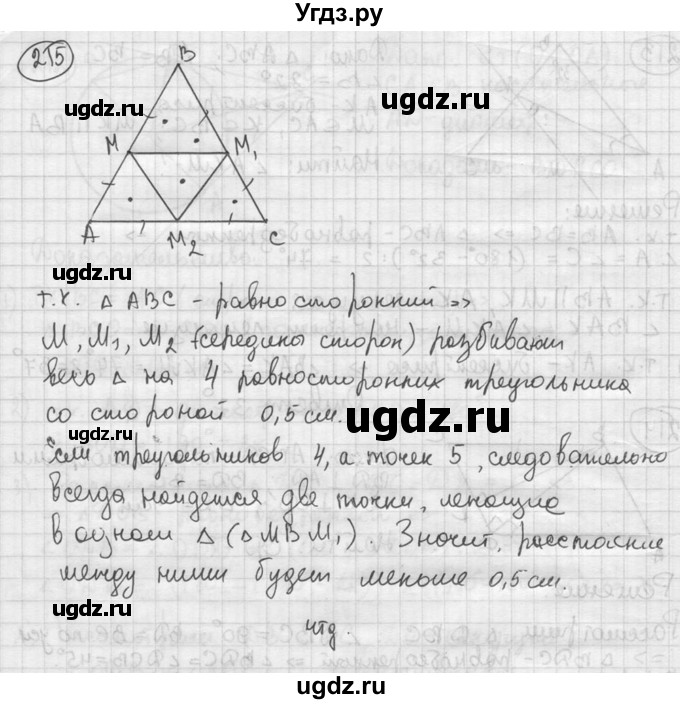 Угдз.ру
215
B
ugdz.ru ugdz.ru
M M₁
A M₂ C
ugdz.ru
т.к. △ABC - равносторонний =>
M, M₁, M₂ (середины сторон) разбивают
весь △ на 4 равносторонних треугольника
со стороной 0,5 см.
ugdz.ru
Если треугольников 4, а точек 5, следовательно
всегда найдется две точки, лежащие
в одном △ (△MBM₁). Значит, расстояние
между ними будет меньше 0,5 см.
ugdz.ru
чтд.
ugdz.ru